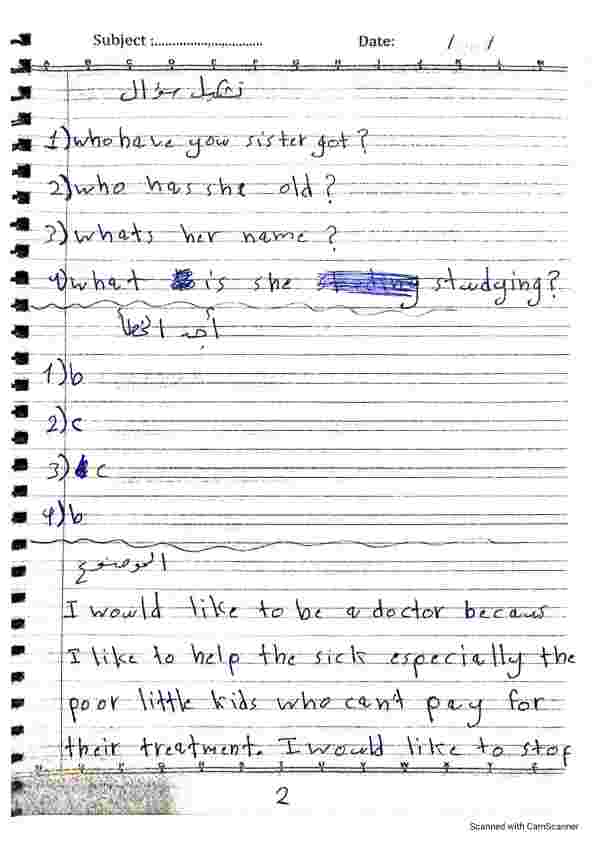 Subject :..............................
Date: / /
تشكيل سؤال
1) who have you sister got?
2) who has she old?
3) whats her name?
4) what is she studying?
أجد الخطأ
1) b
2) c
3) c
4) b
الموضوع
I would like to be a doctor becaus
I like to help the sick especially the
poor little kids who can't pay for
their treatment. I would like to stop
2
Scanned with CamScanner